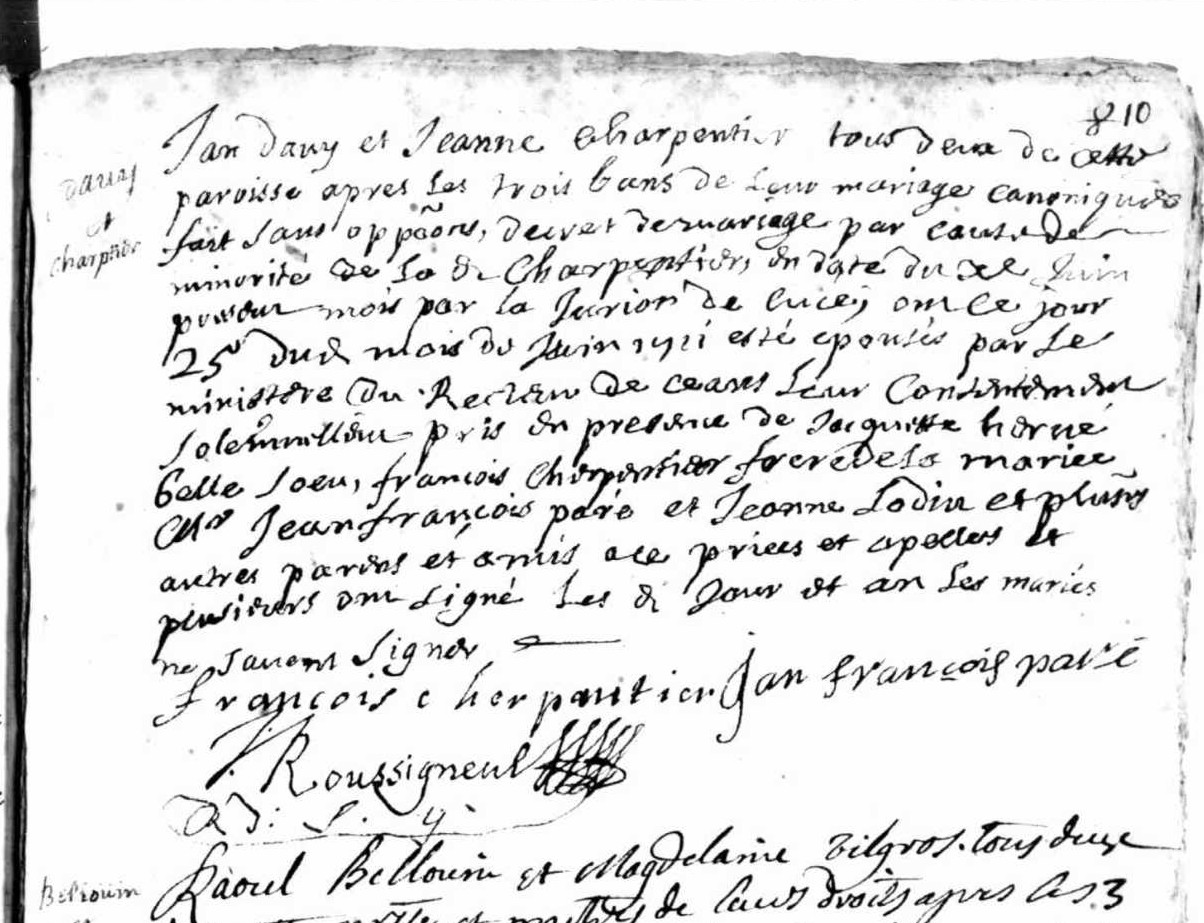 810
Jan Davy et Jeanne Charpentier tous deux de cette
Davy
paroisse apres les trois bans de leur mariage canoniques
et
fait sans oppõons, decret de mariage par cause de
Charpñier
minorité de la dᵉ Charpentier, en date du Juin
present mois par la de Lucé, ont ce jour
25 mois de Juin 1711 esté epousés par le
ministere du Recteur de ceans leur Consentement
solemnellem̃t pris en presence de Jaquette hervé
belle soeur, francois Cherpentier frere de la mariee
Mr Jean françois paré et Jeanne Lodin et plusrs
autres parens et amis a ce priees et apellees et
plusieurs ont signé les dᵗ Jour et an les mariés
ne savent signer
françois cherpantier Jan françois paré
Roussigneul
Raoul Bellouin et Magdelaine Vilgros tous deux
Bellouin
de leurs droits apres les 3